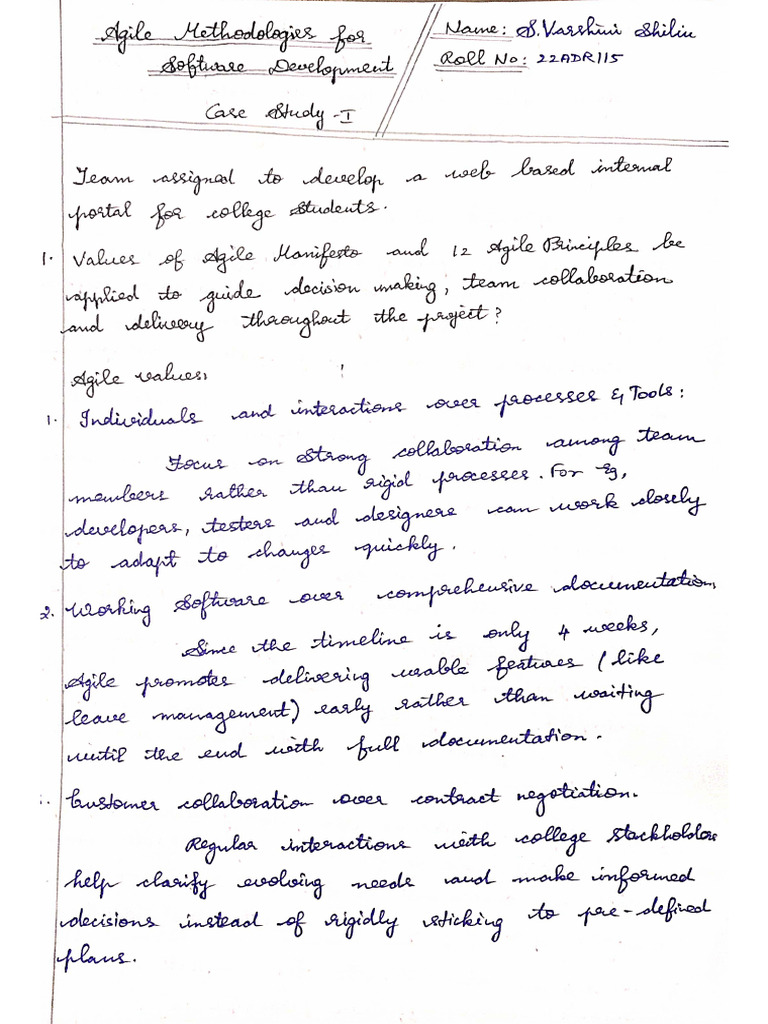 Agile Methodologies for
Software Development
Case Study - I
Name: S. Varshini Shilin
Roll No: 22ADR115
Team assigned to develop a web based internal
portal for college students.
1. Values of Agile Manifesto and 12 Agile Principles be
applied to guide decision making, team collaboration
and delivery throughout the project?
Agile values,
1. Individuals and interactions over processes & Tools:
Focus on strong collaboration among team
members rather than rigid processes. For eg,
developers, testers and designers can work closely
to adapt to changes quickly.
2. Working Software over comprehensive documentation.
Since the timeline is only 4 weeks,
Agile promotes delivering usable features (like
leave management) early rather than waiting
until the end with full documentation.
Customer collaboration over contract negotiation.
Regular interactions with college stackholders
help clarify evolving needs and make informed
decisions instead of rigidly sticking to pre-defined
plans.